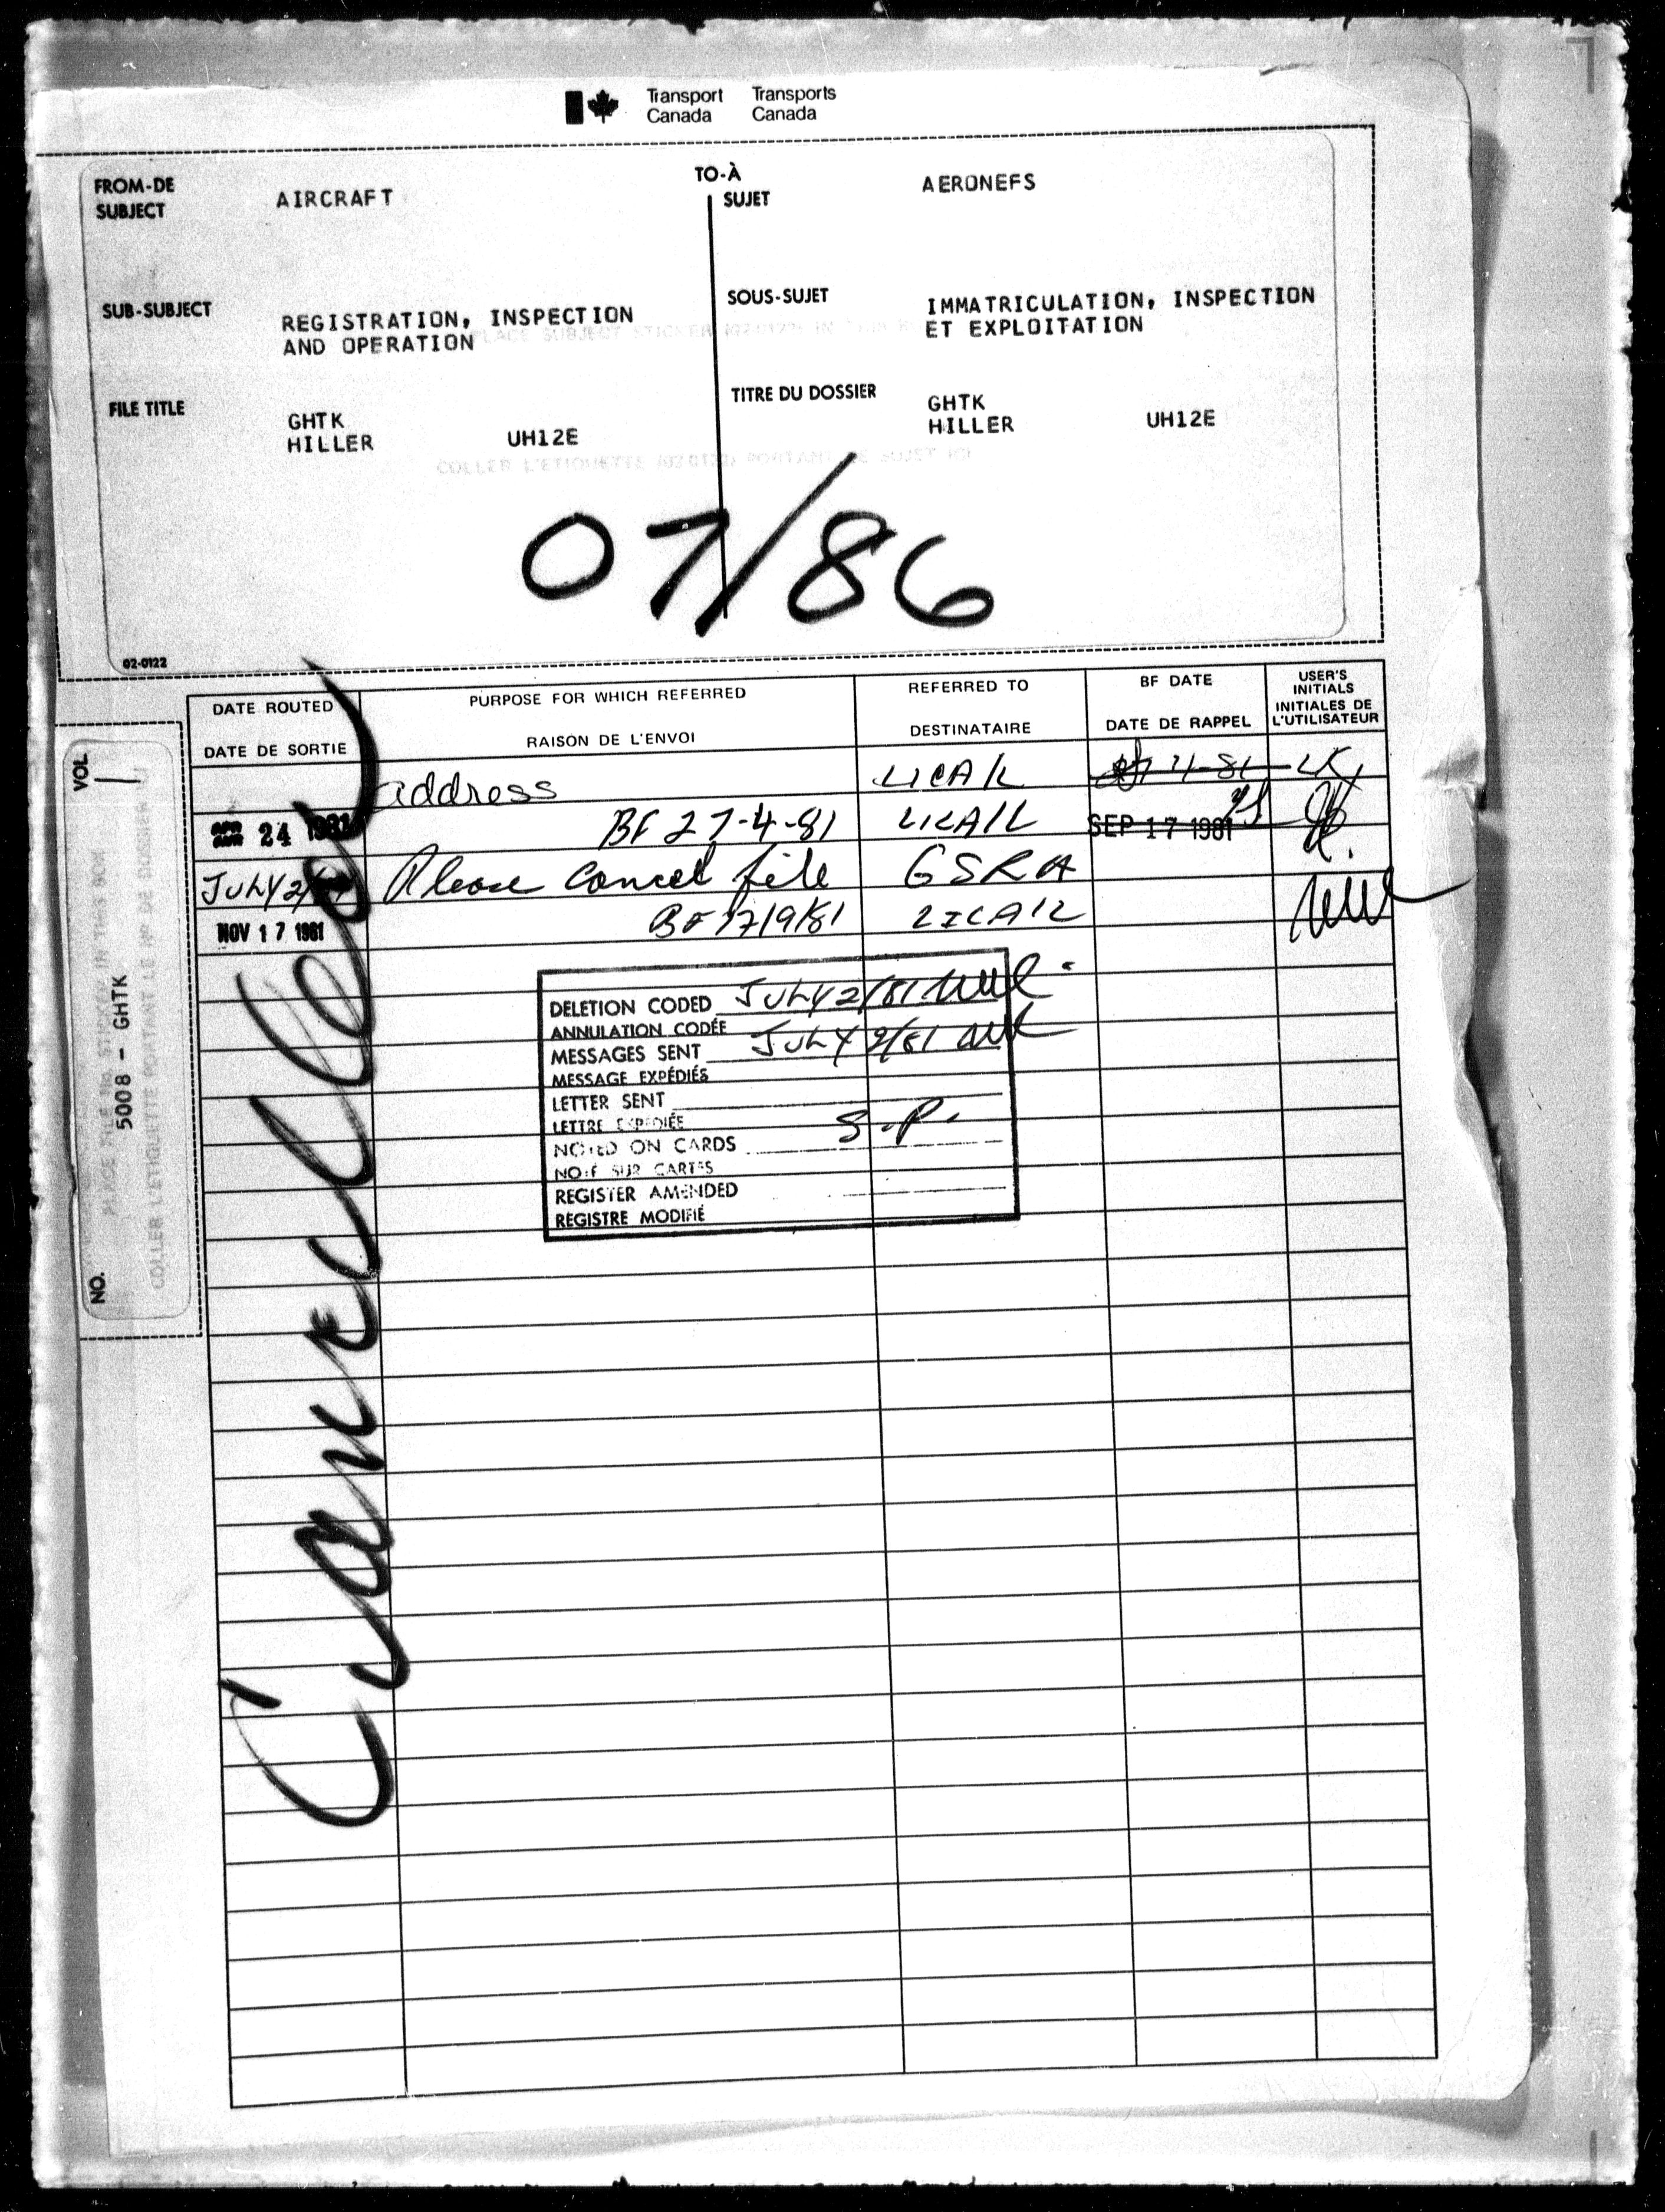 Transport Transports
Canada Canada
FROM-DE TO-À
SUBJECT AIRCRAFT SUJET AERONEFS
SUB-SUBJECT REGISTRATION, INSPECTION
AND OPERATION
SOUS-SUJET IMMATRICULATION, INSPECTION
ET EXPLOITATION
FILE TITLE GHTK
HILLER UH12E
TITRE DU DOSSIER GHTK
HILLER UH12E
COLLER L'ETIQUETTE PORTANT LE SUJET ICI
07/86
02-0122
VOL. 1
NO. 5008 - GHTK
PLACE FILE No. STICKER IN THIS BOX
COLLER L'ETIQUETTE PORTANT LE Nº DE DOSSIER
DATE ROUTED PURPOSE FOR WHICH REFERRED REFERRED TO BF DATE USER'S INITIALS
DATE DE SORTIE RAISON DE L'ENVOI DESTINATAIRE DATE DE RAPPEL INITIALES DE L'UTILISATEUR
address LICAR 4-81 LK
24 1981 BF 27-4-81 LICAR SEP 17 1981
JULY 2/81 Please cancel file GSRA
NOV 17 1981 BF 17/9/81 LICAR
Cancelled
DELETION CODED JULY 2/81
ANNULATION CODÉE
MESSAGES SENT JULY 2/81
MESSAGE EXPÉDIÉS
LETTER SENT
LETTRE EXPEDIÉE
NOTED ON CARDS S.P.
NOTÉ SUR CARTES
REGISTER AMENDED
REGISTRE MODIFIÉ